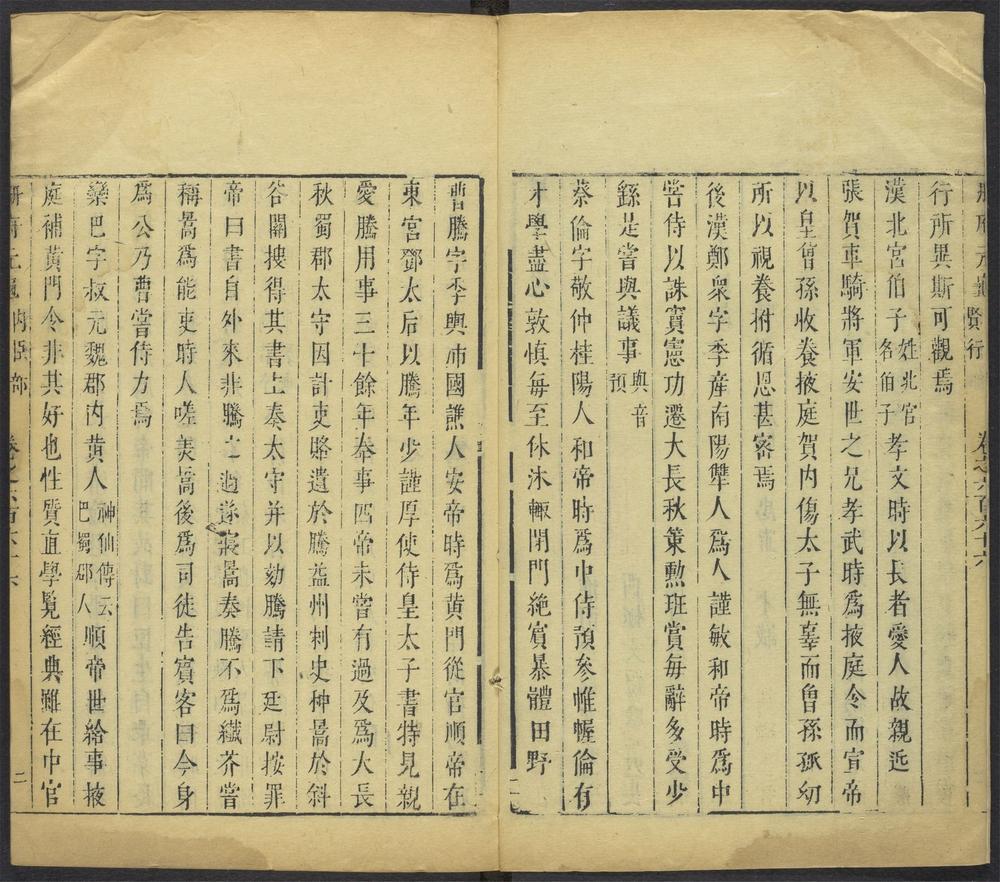 冊府元龜賢行 卷之六百六十六
行所異斯可觀焉
漢北宮伯子姓北宮名伯子孝文時以長者愛人故親近
張賀車騎將軍安世之兄孝武時爲掖庭令而宣帝
以皇曾孫收養掖庭賀內傷太子無辜而曾孫孤幼
所以視養拊循恩甚密焉
後漢鄭衆字季產南陽犨人爲人謹敏和帝時爲中
常侍以誅竇憲功遷大長秋策勲班賞毎辭多受少
繇是嘗與議事與音預
蔡倫字敬仲桂陽人和帝時爲中侍預參帷幄倫有
才學盡心敦慎毎至休沐輙閉門絶賓暴體田野
二
曹騰字季興沛國譙人安帝時爲黄門從官順帝在
東宮鄧太后以騰年少謹厚使侍皇太子書特見親
愛騰用事三十餘年奉事四帝未嘗有過及爲大長
秋蜀郡太守因計吏賂遺於騰益州刺史种暠於斜
谷關搜得其書上奏太守并以劾騰請下廷尉按罪
帝曰書自外來非騰之過遂寢暠奏騰不爲纎芥嘗
稱暠爲能吏時人嗟羙暠後爲司徒告賓客曰今身
爲公乃曹嘗侍力焉
欒巴字叔元魏郡內黄人神仙傳云巴蜀郡人順帝世給事掖
庭補黄門令非其好也性質直學覽經典雖在中官
冊府元龜內臣部 卷之六百六十六 二